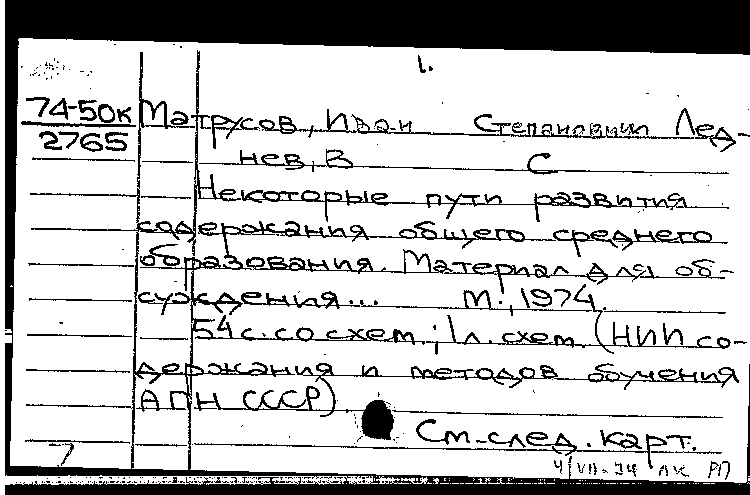 1.
74-50к Матрусов, Иван Степанович Лед-
2765 нев, В С
Некоторые пути развития
содержания общего среднего
образования. Материал для об-
суждения... М., 1974.
54 с. со схем.; 1 л. схем. (НИИ со-
держания и методов обучения
АПН СССР)
См. след. карт.
7 4/VII-74 лк РП